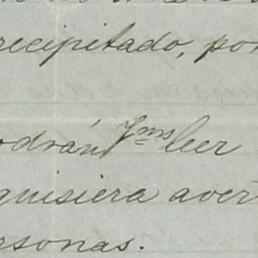 recipitado, por
odrán Vms leer
quisiera aver
rsonas.